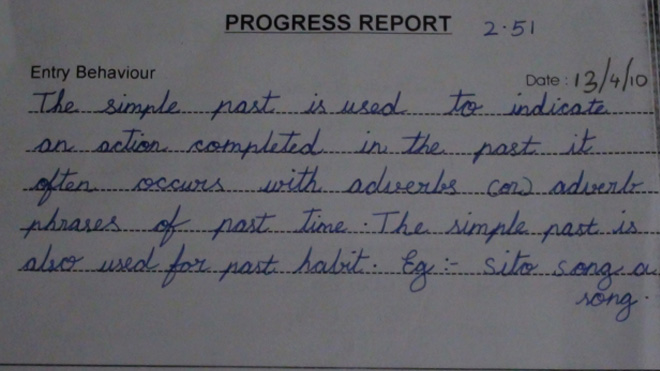 PROGRESS REPORT 2.51
Entry Behaviour
Date : 13/4/10
The simple past is used to indicate
an action completed in the past it
often occurs with adverbs (or) adverb
phrases of past time. The simple past is
also used for past habit. Eg :- Sita song a
song.